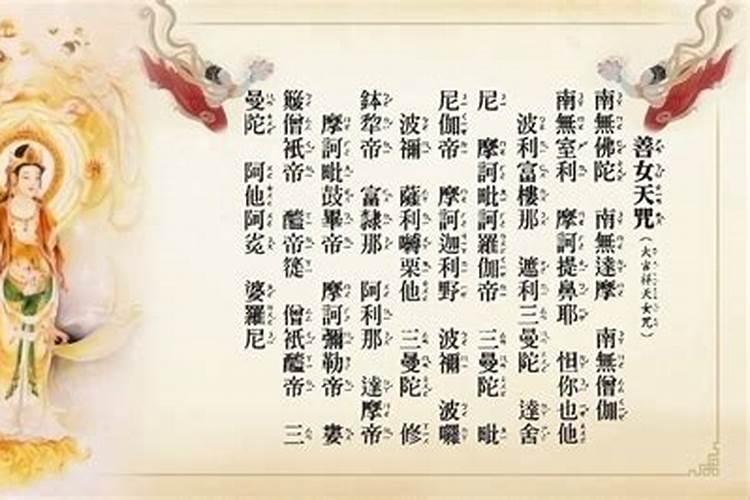 善女天咒(大吉祥天女咒)
南無佛陀 南無達摩 南無僧伽
南無室利 摩訶提鼻耶 怛你也他
波利富樓那 遮利三曼陀 達舍
尼 摩訶毗訶羅伽帝 三曼陀 毗
尼伽帝 摩訶迦利野 波禰 波囉
波禰 薩利嚩栗他 三曼陀 修
鉢犂帝 富隸那 阿利那 達摩帝
摩訶毗鼓畢帝 摩訶彌勒帝 婁
簸僧祇帝 醯帝簁 僧祇醯帝 三
曼陀 阿他阿㝹 婆羅尼